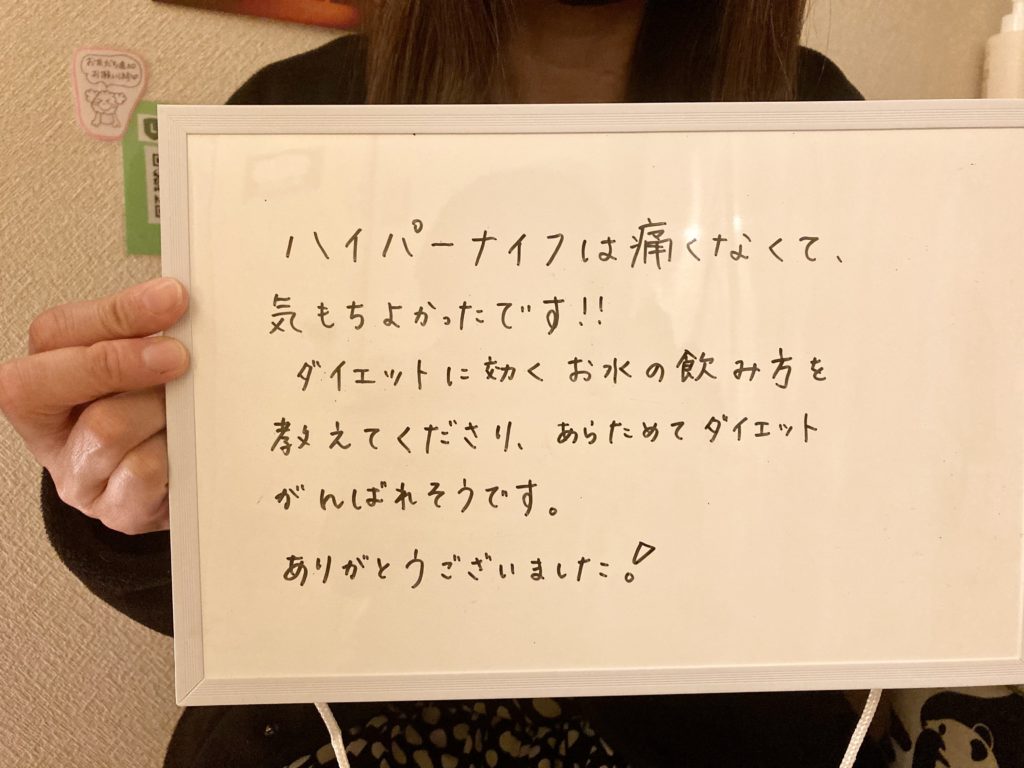 お友だち追加
お願いします
ハイパーナイフは痛くなくて、
気もちよかったです!!
ダイエットに効くお水の飲み方を
教えてくださり、あらためてダイエット
がんばれそうです。
ありがとうございました!